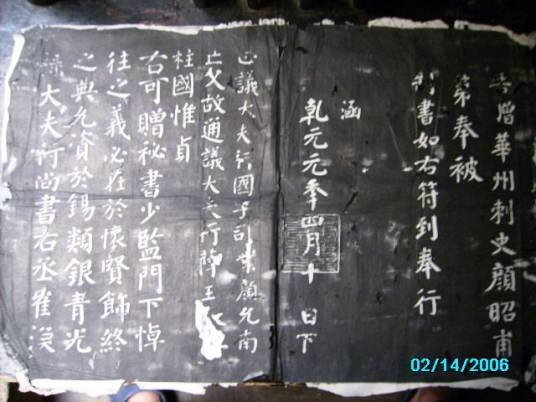 告贈華州刺史顏昭甫
第奉被
制書如右符到奉行
涵
乾元元年四月十日下
正議大夫行國子司業顏允南
亡父故通議大夫行薛王
柱國惟貞
右可贈祕書少監門下悼
往之義必在於懷賢飾終
之典允資於錫類銀青光
祿大夫行尚書右丞崔
02/14/2006